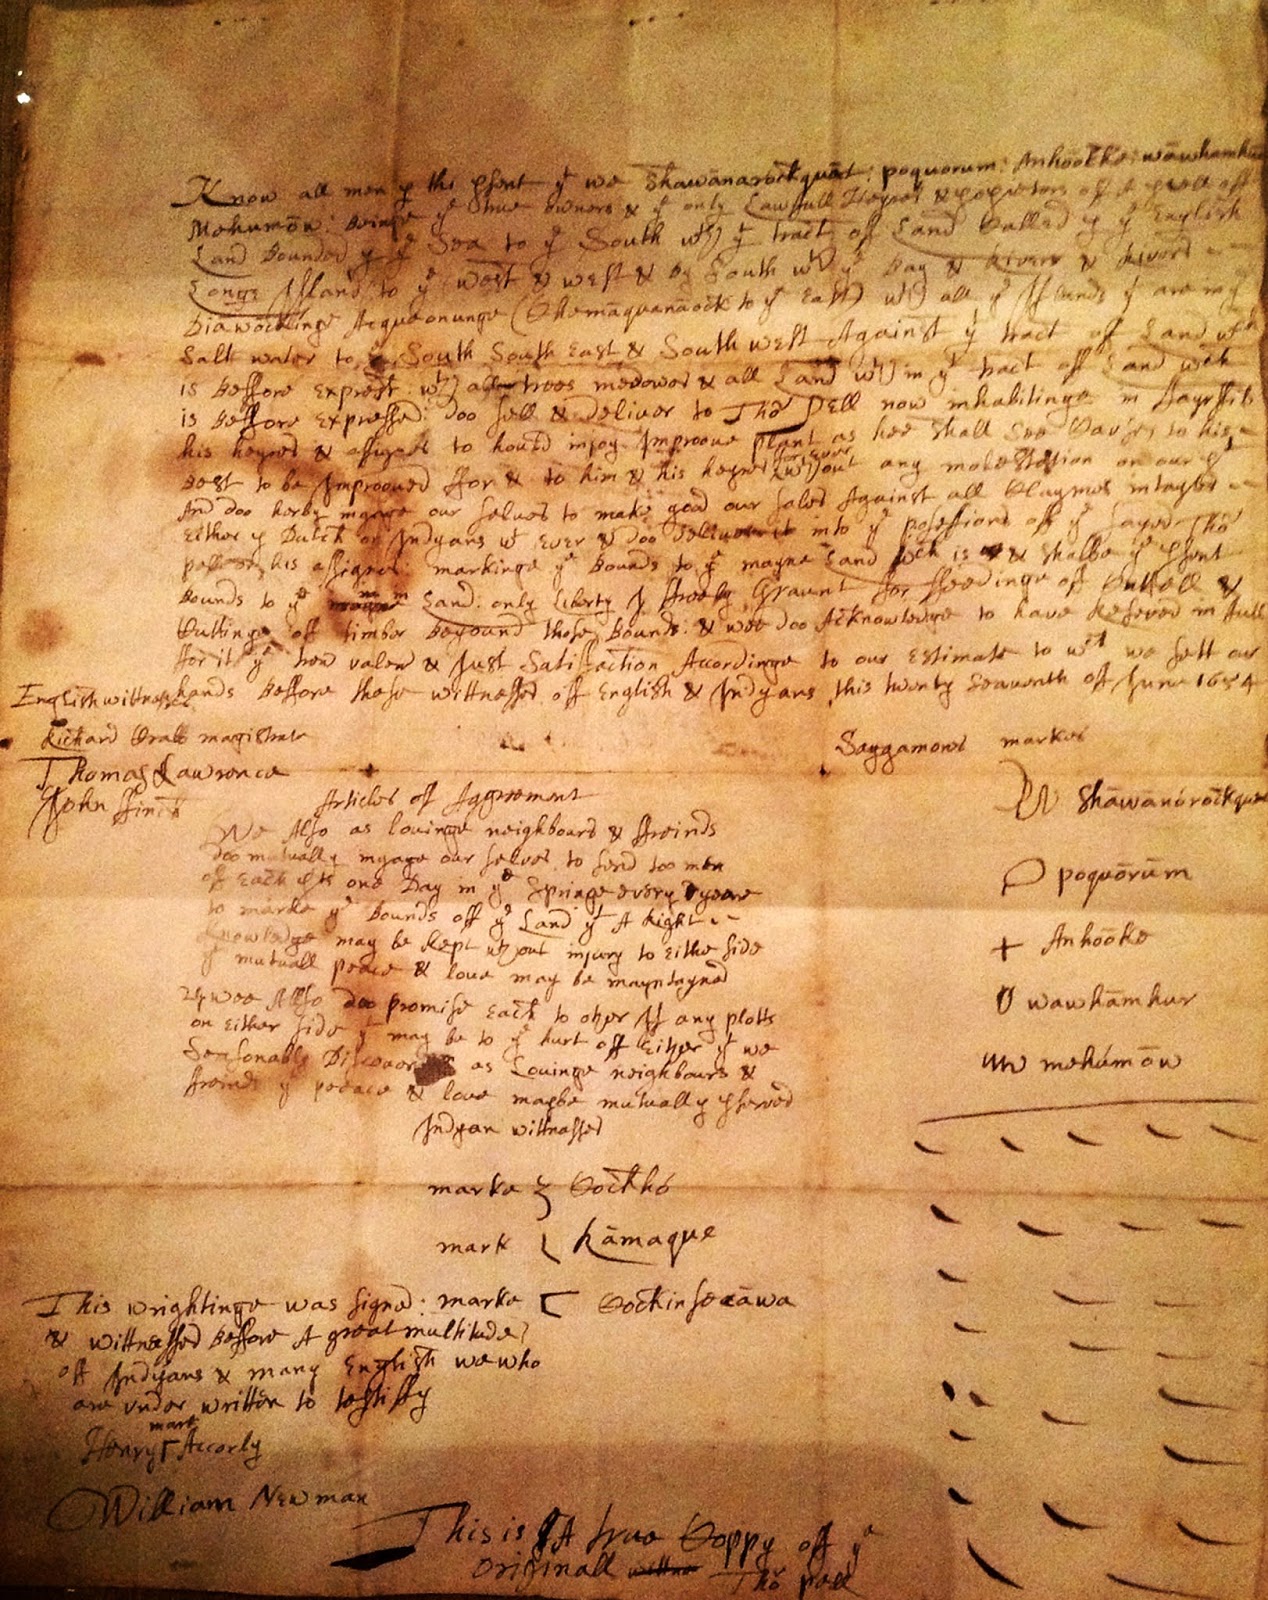 Know all men p the psent yt we Shāwānarōckquāt: poquorum: Anhōōtke: wāwhamkus
Mehumōn: Beinge ye true owners & ye only Lawfull Heyres & ppietors off ye
Land Bounded p ye Sea to ye South wth yt tract off Land Called p ye English
Longe Island to ye west & west & By South wth ye Bay & River & River
Diawōckinge Acqueonunge (Chemāquanāock to ye East) wth all ye Islands yt are in ye
Salt water to ye South South East & South west Against yt tract off Land wch
is Beffore Exprest: wth all trees medowes & all Land wthin ye tract off Land wch
is Beffore Expressed: Doo sell & Deliver to Tho Pell now inhabitinge in Fayrffils
his heyres & assignes to hould injoy Improove plant as hee shall See Cause to his
Best to be Improoved ffor & to him & his heyres ffor ever wthout any molestation on our pt
And doo herby ingage our selves to make good our Saled Against all Claymes
Either p Dutch or Indyans wt Ever & Doo Deliver it into ye posessions off ye sayed Tho
pell or his assignes: markinge ye Bounds to ye mayne Land wch is & shalbe ye psent
Bounds to ye main Land: only Liberty I ffreely Graunt ffor ffeedinge off Cattell &
Cuttinge off timber Beyound those Bounds: & wee doo Acknowledge to have Reseved in full
ffor it ye trew valew & Just Satisfaction Accordinge to our Estimate to wch we sett our
hands Beffore these wittnesses off English & Indyans this twenty Seaventh off June 1654
English wittnesses
Richard Crab magistrate
Thomas Lawrence
John Ffinch
Saggamores markes
Shāwānórōckquot
poquōrūm
Anhōōke
wawhāmkur
mehúmōw
Articles of Aggrement
We Also as lovinge neighbours & ffreinds
Doo mutually ingage our selves to send too men
of Each pts one Day in ye Springe every yeare
to marke ye Bounds off ye Land yt A Right
knowledge may be kept wthout injury to Eithe side
yt mutuall peace & love may be mayntayned
2ly wee Allso doo promise Each to other If any plotts
on Either side yt may be to ye hurt off Either yt we
Seasonably Discover as Lovinge neighbours &
ffreinds yt peeace & love maybe mutually pserved
Indyan wittnesses
marke Cockho
mark Kāmaque
marke Cockinsecāwa
This wrightinge was signed:
& wittnessed Beffore A great multitude
off Indyans & many English we who
are under written to testiffy
mark
Henry Accorly
William Newman
This is A true Coppy off ye
Originall Tho pell